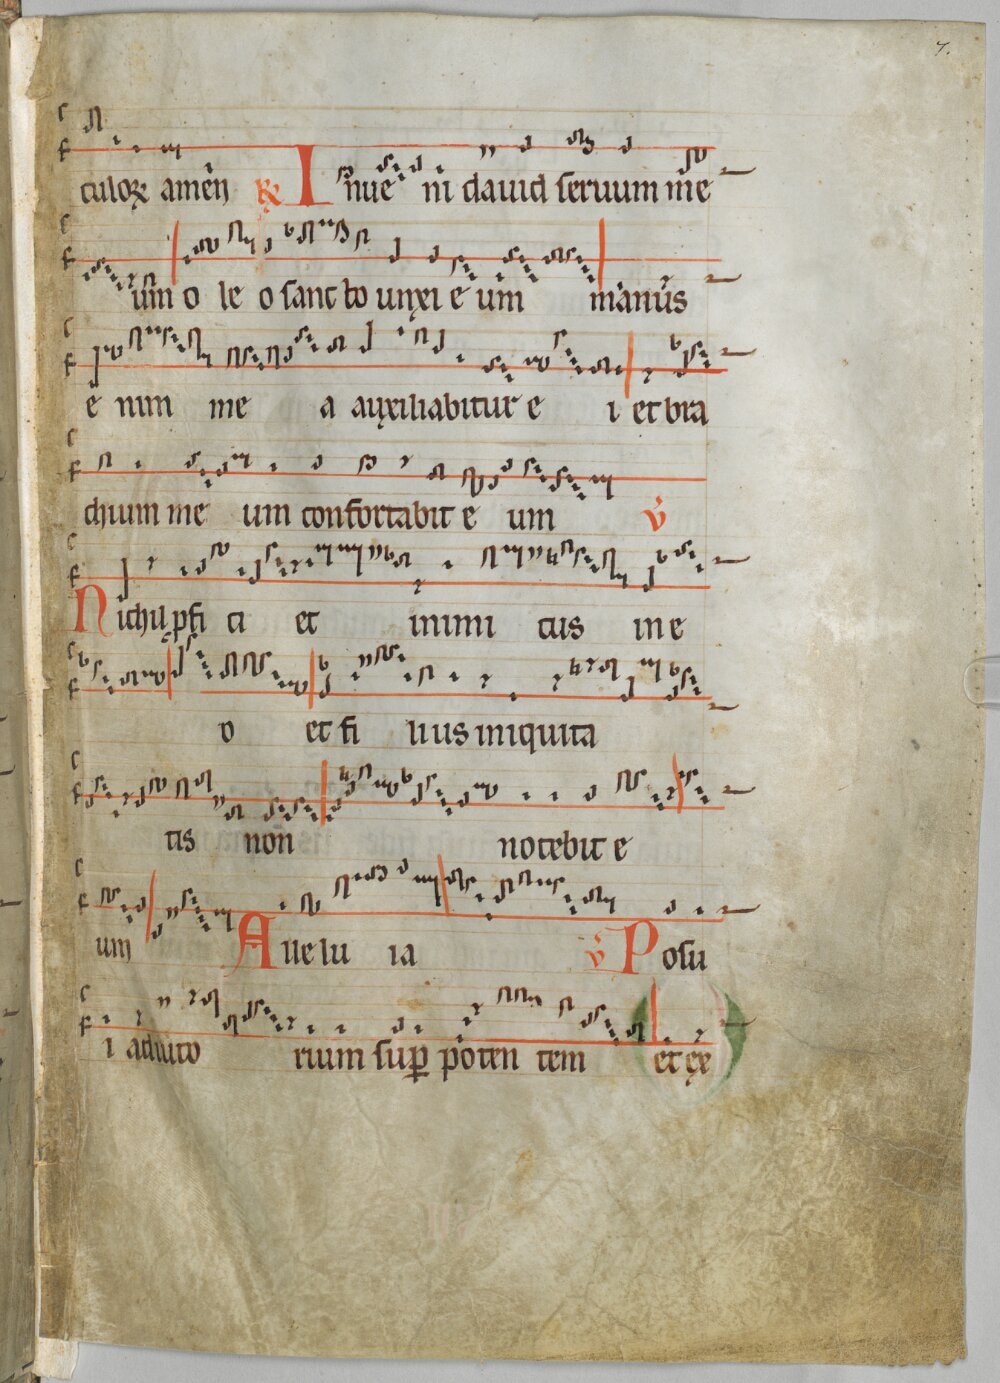 7.
culoꝝ amen ℟ Inue ni dauid seruum me
um o le o sancto unxi e um manus
e nim me a auxiliabitur e i et bra
chium me um confortabit e um v̇
Nichil ꝓfi ci et inimi cus in e
o et fi lius iniquita
tis non nocebit e
um Aueluia v̇ Posu
i adiuto rium suꝑ poten tem et ex